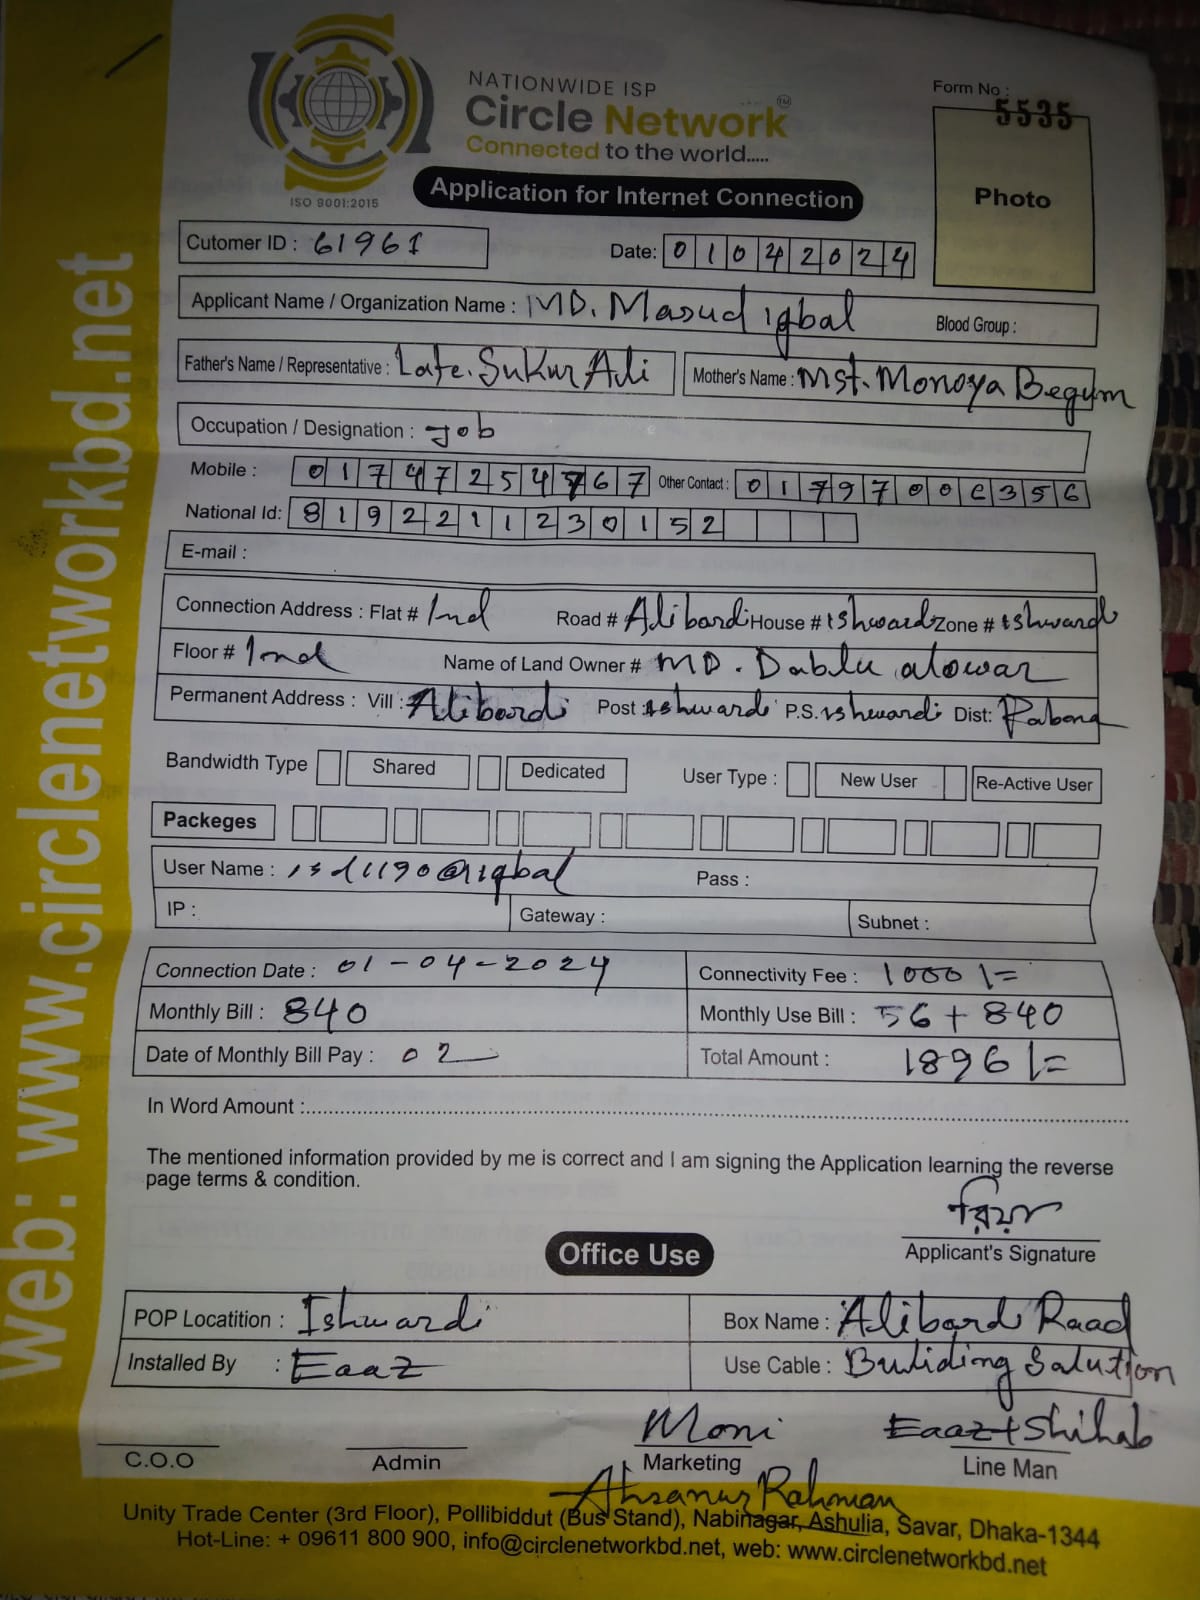 NATIONWIDE ISP
Circle Network TM
Connected to the world.....
ISO 9001:2015
Form No : 5535
Photo
Application for Internet Connection
Cutomer ID : 61961
Date: 01042024
Applicant Name / Organization Name : MD. Masud iqbal Blood Group :
Father's Name / Representative : Late. Sukur Ali Mother's Name : Mst. Monoya Begum
Occupation / Designation : Job
Mobile : 01747254767 Other Contact : 01797006356
National Id: 8192211230152
E-mail :
Connection Address : Flat # 1nd Road # Alibardi House # ishwardi Zone # ishwardi
Floor # 1nd Name of Land Owner # MD. Dablu alowar
Permanent Address : Vill : Alibardi Post : ishwardi P.S. ishwardi Dist: Pabona
Bandwidth Type Shared Dedicated User Type : New User Re-Active User
Packeges
User Name : isd1190@iqbal Pass :
IP : Gateway : Subnet :
Connection Date : 01-04-2024 Connectivity Fee : 1000/=
Monthly Bill : 840 Monthly Use Bill : 56+840
Date of Monthly Bill Pay : 02 Total Amount : 1896/=
In Word Amount :
The mentioned information provided by me is correct and I am signing the Application learning the reverse
page terms & condition.
রিয়া
Applicant's Signature
Office Use
POP Locatition : Ishwardi Box Name : Alibardi Raad
Installed By : Eaaz Use Cable : Buliding Salution
Moni Eaaz+Shihab
C.O.O Admin Marketing Line Man
Ahsanur Rahman
Unity Trade Center (3rd Floor), Pollibiddut (Bus Stand), Nabinagar, Ashulia, Savar, Dhaka-1344
Hot-Line: + 09611 800 900, info@circlenetworkbd.net, web: www.circlenetworkbd.net
web: www.circlenetworkbd.net